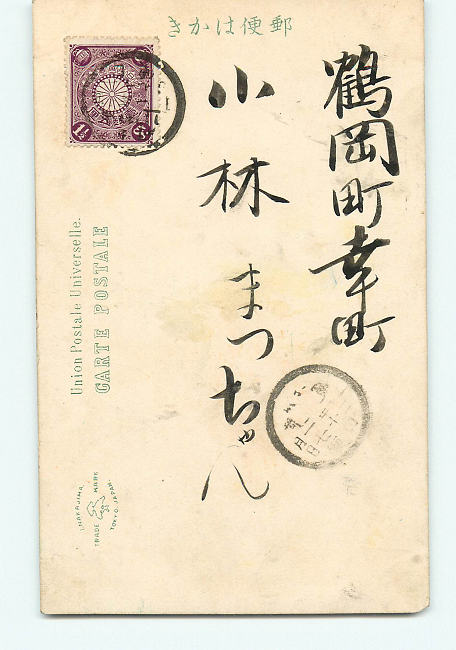 きかは便郵
鶴岡町幸町
小林まつちゃん
Union Postale Universelle.
CARTE POSTALE
NAKAJIMA
TRADE MARK
TOKYO, JAPAN.